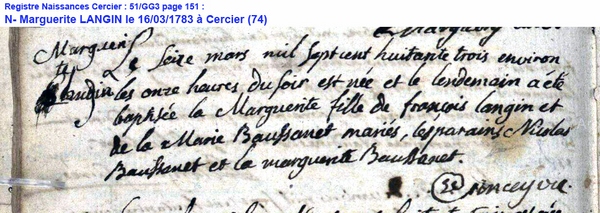 Registre Naissances Cercier : 51/GG3 page 151 :
N- Marguerite LANGIN le 16/03/1783 à Cercier (74)
Marguerit
te
Landin
Le seize mars mil sept cent huitante trois environ
les onze heures du soir est née et le lendemain a été
baptisée la Marguerite fille de françois langin et
de la Marie Baussanet mariés, les parains Nicolas
Baussanet et la marguerite Baussanet.